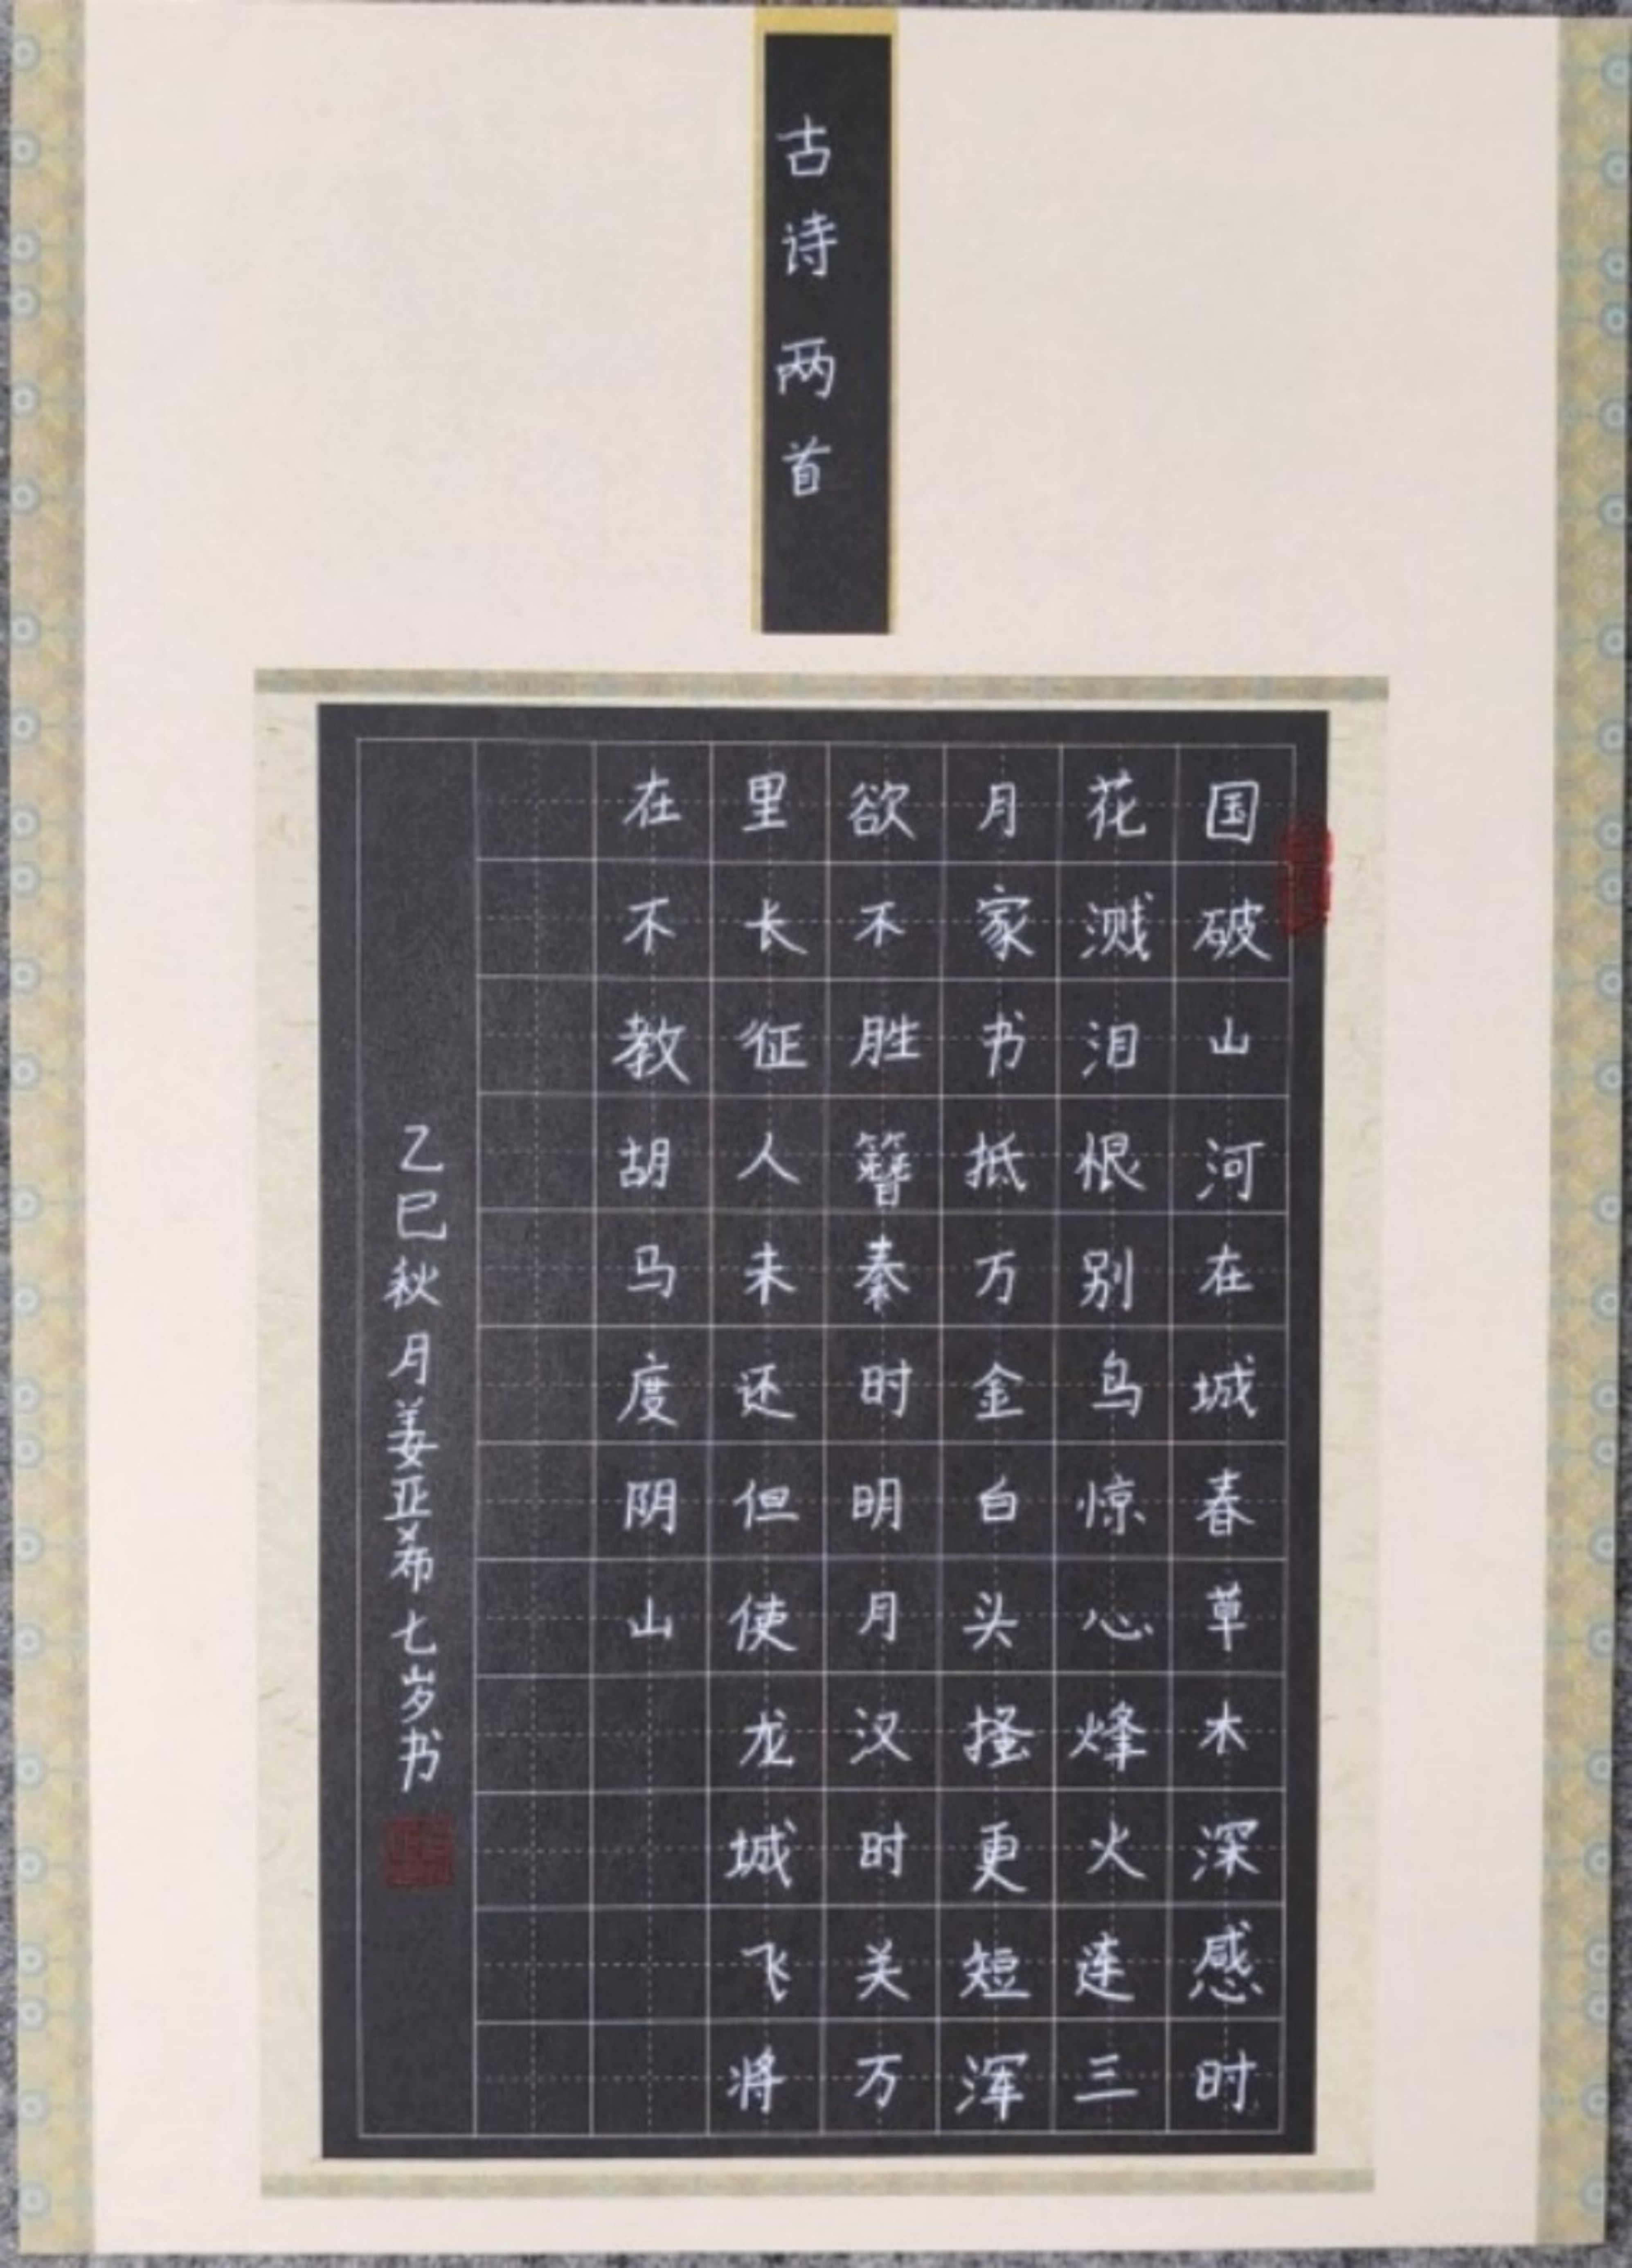 古诗两首
国破山河在城春草木深感时
花溅泪恨别鸟惊心烽火连三
月家书抵万金白头搔更短浑
欲不胜簪秦时明月汉时关万
里长征人未还但使龙城飞将
在不教胡马度阴山
乙巳秋月姜亚希七岁书